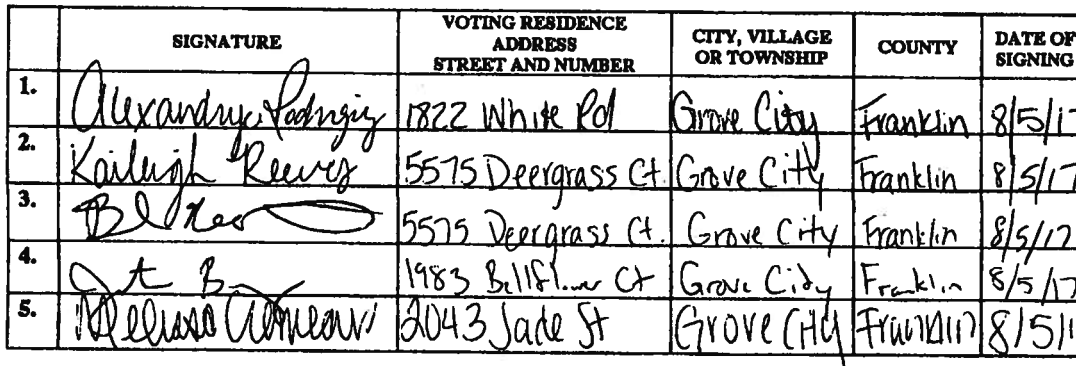 SIGNATURE VOTING RESIDENCE ADDRESS STREET AND NUMBER CITY, VILLAGE OR TOWNSHIP COUNTY DATE OF SIGNING
1. 1822 White Rd Grove City Franklin 8/5/17
2. Kaileigh Reeves 5575 Deergrass Ct. Grove City Franklin 8/5/17
3. 5575 Deergrass Ct. Grove City Franklin 8/5/17
4. 1983 Bellflower Ct Grove City Franklin 8/5/17
5. 2043 Jade St Grove City Franklin 8/5/1